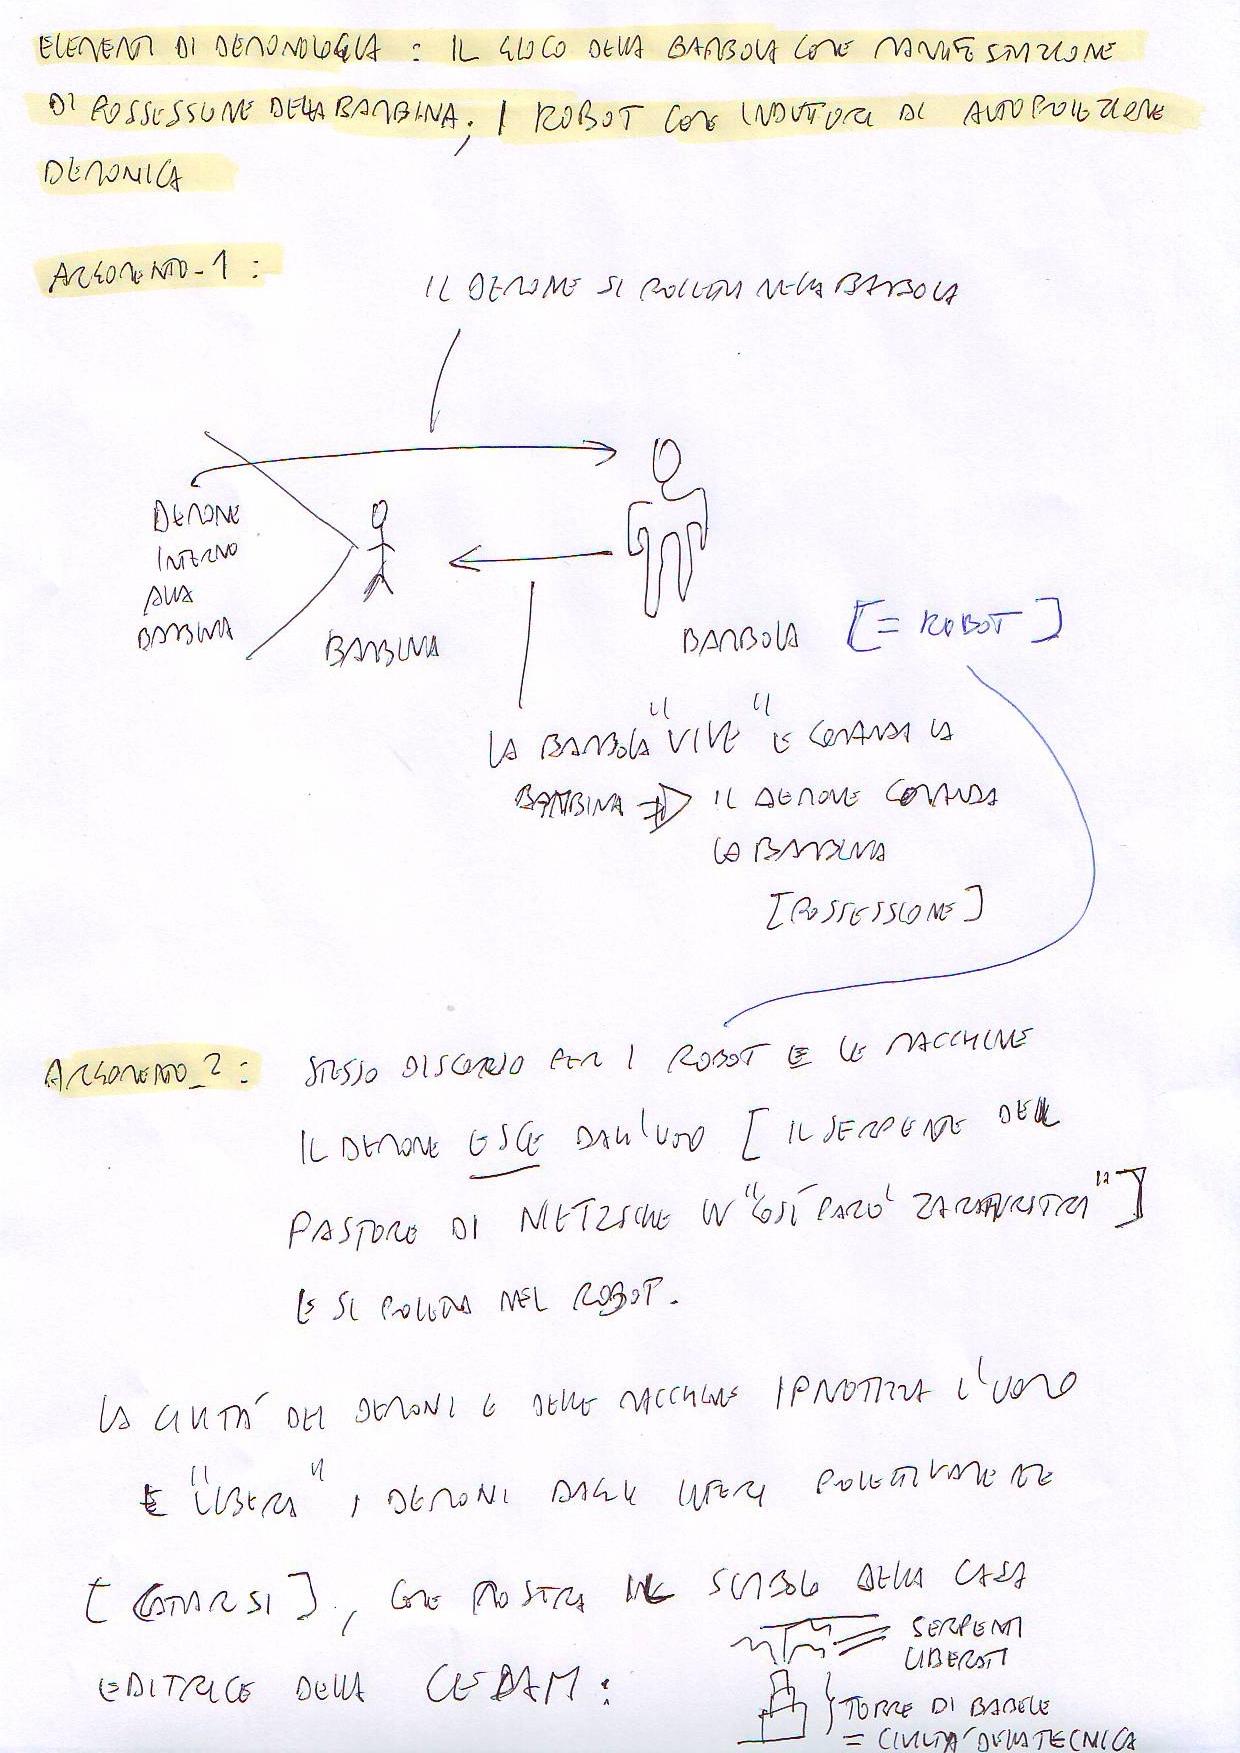 ELEMENTI DI DEMONOLOGIA : IL GIOCO DELLA BAMBOLA COME MANIFESTAZIONE
DI POSSESSIONE DELLA BAMBINA; I ROBOT COME INDUTTORI DI AUTOPROIEZIONE
DEMONICA
ARGOMENTO_1 :
IL DEMONE SI PROIETTA NELLA BAMBOLA
DEMONE
INTERNO
ALLA
BAMBINA
BAMBINA
BAMBOLA [= ROBOT]
LA BAMBOLA "VIVE" E COMANDA LA
BAMBINA => IL DEMONE COMANDA
LA BAMBINA
[POSSESSIONE]
ARGOMENTO_2 : STESSO DISCORSO PER I ROBOT E LE MACCHINE
IL DEMONE ESCE DALL'UOMO [IL SERPENTE DEL
PASTORE DI NIETZSCHE IN "COSÌ PARLÒ ZARATHUSTRA"]
E SI PROIETTA NEL ROBOT.
LA CIVILTÀ DEI DEMONI E DELLE MACCHINE IPNOTIZZA L'UOMO
E "LIBERA" I DEMONI DAGLI INFERI PROIETTIVAMENTE
[CATARSI], COME MOSTRA IL SIMBOLO DELLA CASA
EDITRICE DELLA CEDAM :
SERPENTI
LIBERATI
TORRE DI BABELE
= CIVILTÀ DELLA TECNICA